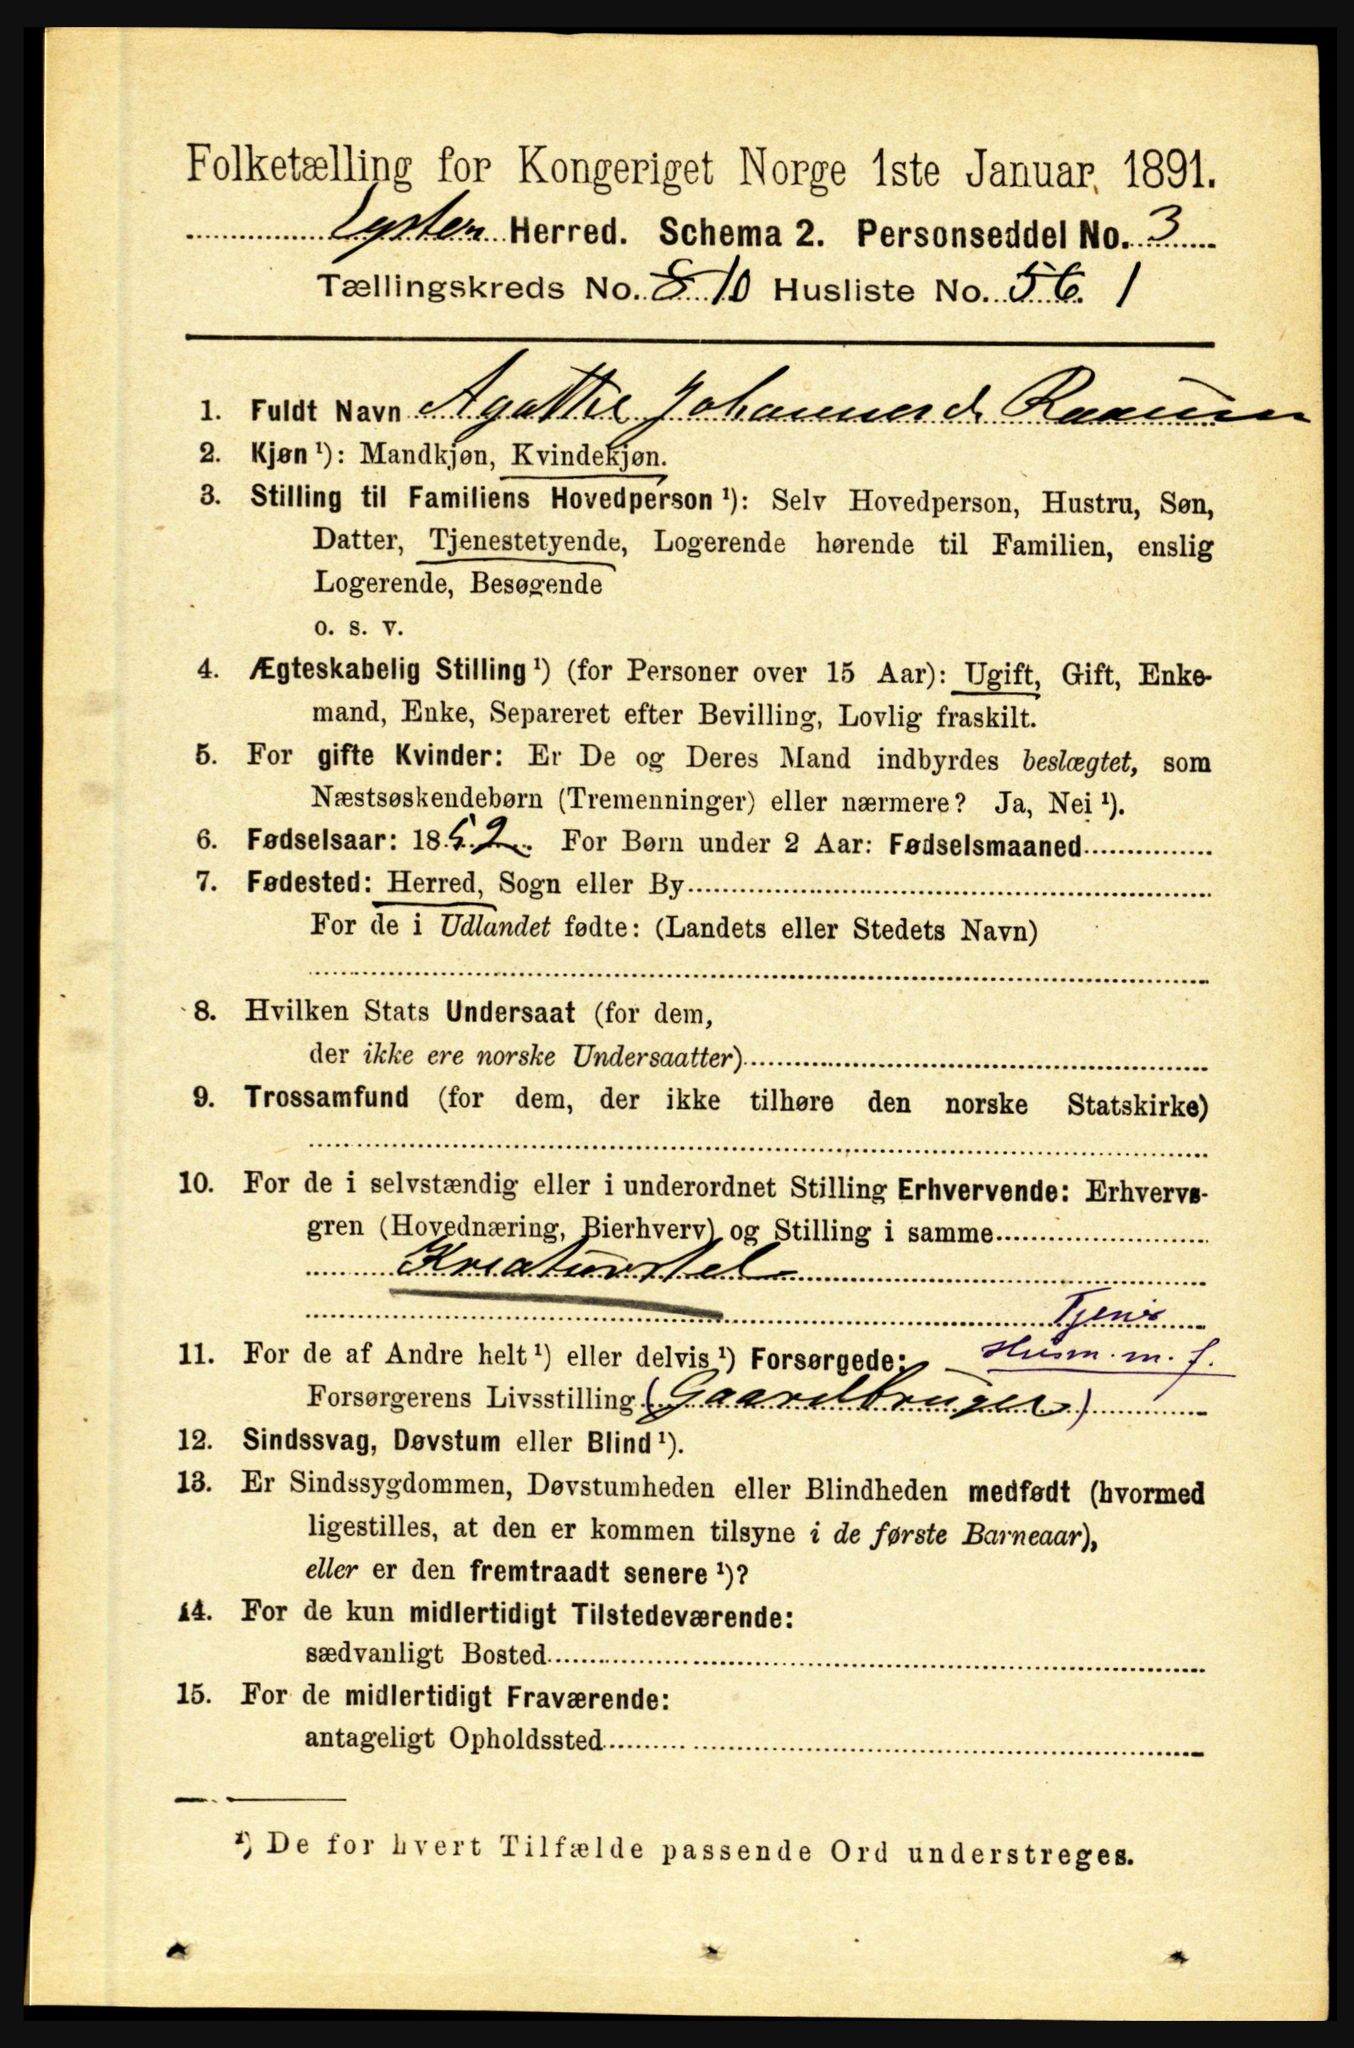 Folketælling for Kongeriget Norge 1ste Januar 1891.
Lyster Herred. Schema 2. Personseddel No. 3
Tællingskreds No. 8 10 Husliste No. 56. 1
1. Fuldt Navn Agathe Johannesd. Raaum
2. Kjøn ¹): Mandkjøn, Kvindekjøn.
3. Stilling til Familiens Hovedperson ¹): Selv Hovedperson, Hustru, Søn,
Datter, Tjenestetyende, Logerende hørende til Familien, enslig
Logerende, Besøgende
o. s. v.
4. Ægteskabelig Stilling ¹) (for Personer over 15 Aar): Ugift, Gift, Enke-
mand, Enke, Separeret efter Bevilling, Lovlig fraskilt.
5. For gifte Kvinder: Er De og Deres Mand indbyrdes beslægtet, som
Næstsøskendebørn (Tremenninger) eller nærmere? Ja, Nei ¹).
6. Fødselsaar: 1852. For Børn under 2 Aar: Fødselsmaaned
7. Fødested: Herred, Sogn eller By
For de i Udlandet fødte: (Landets eller Stedets Navn)
8. Hvilken Stats Undersaat (for dem,
der ikke ere norske Undersaatter)
9. Trossamfund (for dem, der ikke tilhøre den norske Statskirke)
10. For de i selvstændig eller i underordnet Stilling Erhvervende: Erhvervs-
gren (Hovednæring, Bierhverv) og Stilling i samme
Kreaturstel
Tjener
11. For de af Andre helt ¹) eller delvis ¹) Forsørgede: Husm. m. f.
Forsørgerens Livsstilling (Gaardbruger)
12. Sindssvag, Døvstum eller Blind ¹).
13. Er Sindssygdommen, Døvstumheden eller Blindheden medfødt (hvormed
ligestilles, at den er kommen tilsyne i de første Barneaar),
eller er den fremtraadt senere ¹)?
14. For de kun midlertidigt Tilstedeværende:
sædvanligt Bosted
15. For de midlertidigt Fraværende:
antageligt Opholdssted
¹) De for hvert Tilfælde passende Ord understreges.